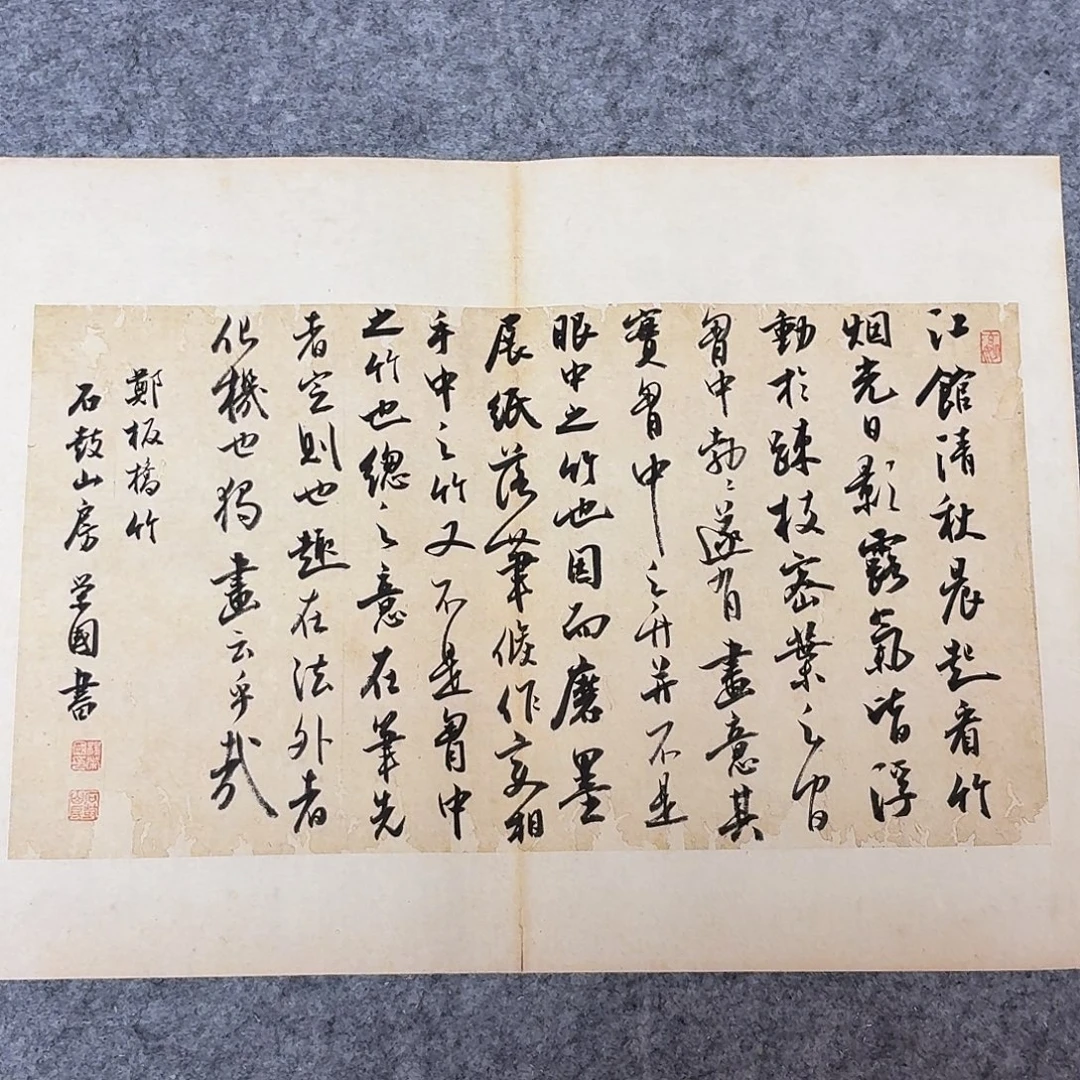 江館清秋晨起看竹
烟光日影露氣皆浮
動於疎枝密葉之間
胷中勃〻遂有畫意其
實胷中之竹并不是
眼中之竹也因而磨墨
展紙落筆倐作变相
手中之竹又不是胷中
之竹也總之意在筆先
者定則也趣在法外者
化機也獨畫云乎哉
鄭板橋竹
石鼓山房 國書